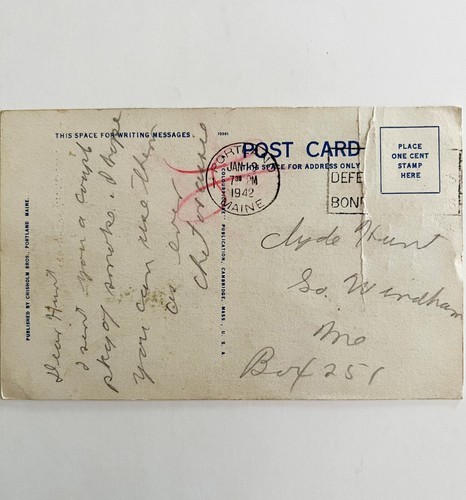 THIS SPACE FOR WRITING MESSAGES.
POST CARD
THIS SPACE FOR ADDRESS ONLY
PLACE
ONE CENT
STAMP
HERE
PORTLAND
JAN 19
7 30 PM
1942
MAINE
DEFE
BON
PUBLISHED BY CHISHOLM BROS. PORTLAND MAINE.
PUBLICATION, CAMBRIDGE, MASS., U. S. A.
Dear Hunt
I sent you a
pkg of smoke. I hope
you can use them
as ever
Chet
Clyde Hunt
So. Windham
Me
Box 251